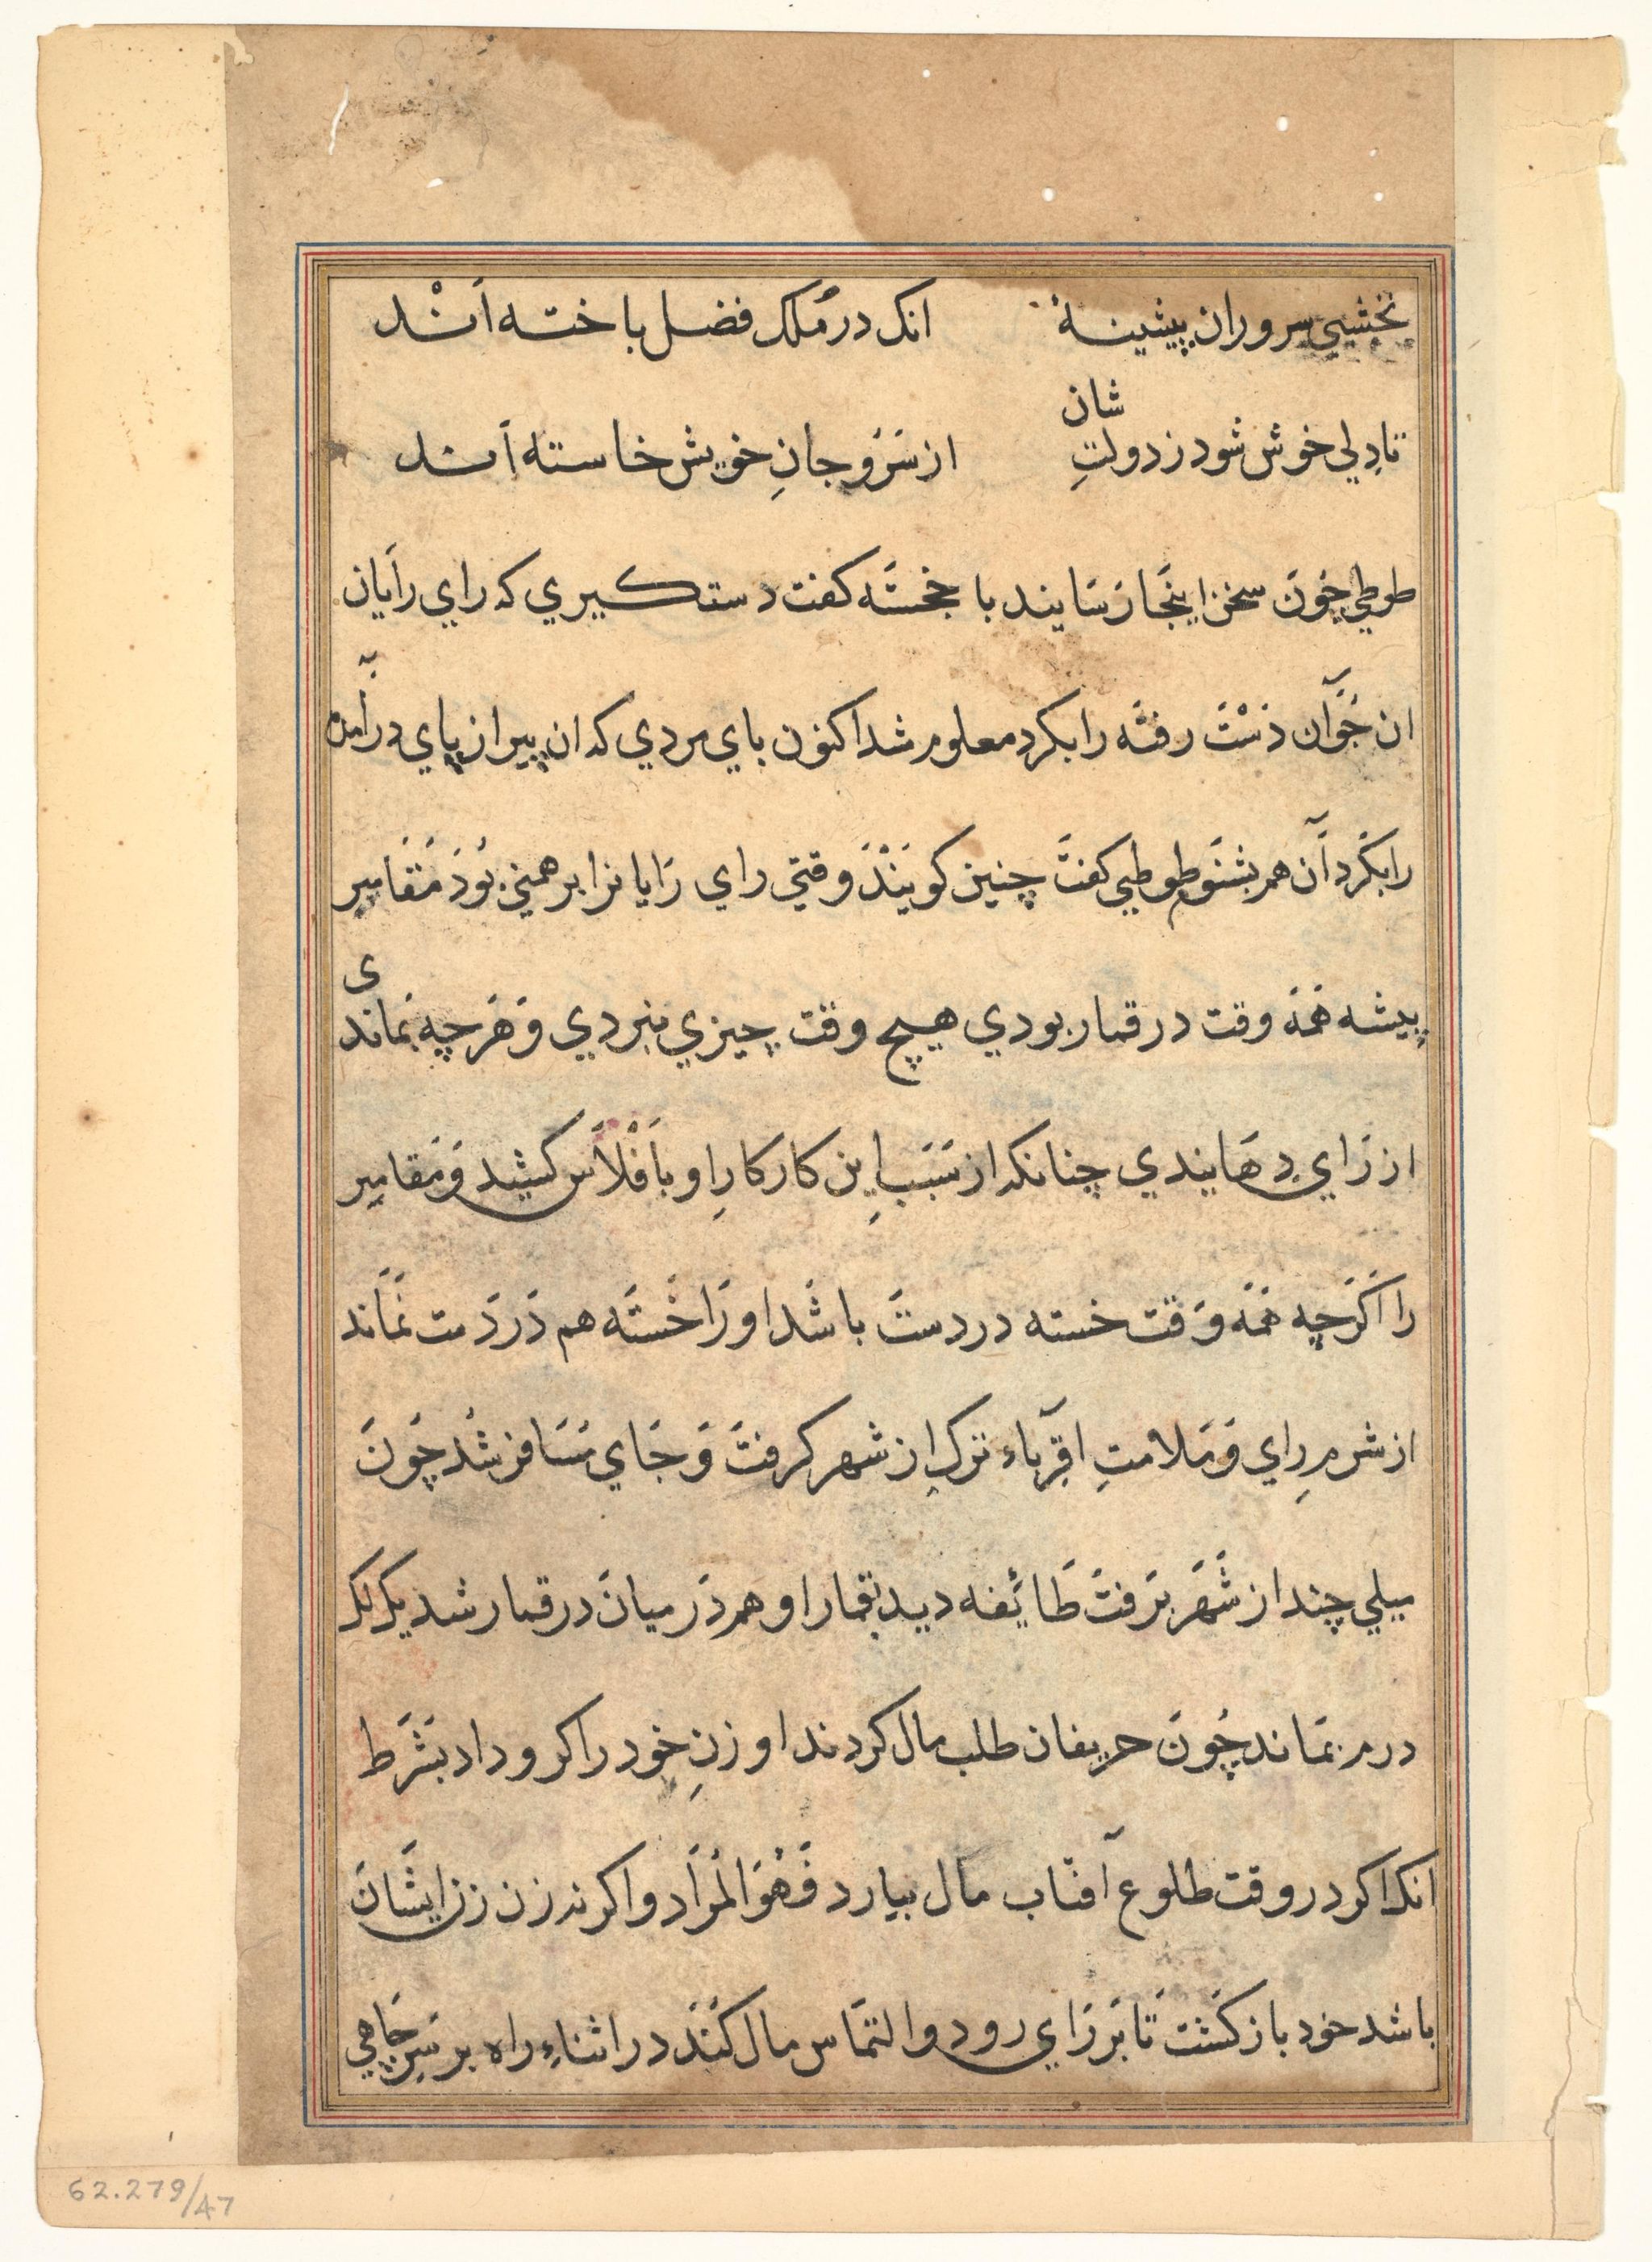 نخشبي سروران پیشینهٔ انک در مُلک فضل باخته اَنْد
شان
تا دِلي خوش شود ز دولتِ از سَرْ و جانِ خویش خاسته اَند
طوطي چُون سخن اینجَا رَسَانید با خجسته کفت دستکیري که راي رایان
ان جَوَان دَسْتْ رفته را بکرد معلوم شد اکنون پاي مردي که ان پیر از پاي درآمده
را بکَرد آن هم بشنَو طوطي کفتْ چنین کویَنْدْ وقتي راي رَایانرا برهمني بُودْ مُقَامِر
ی
پیشه هَمَه وقت در قمار بودي هیچ وقت چیزي نبردي وَ هَرچه بمَاند
از رَاي دِهَانیدي چنانکه از سَبَبِ این کار کارِ او با فْلاَس کشید وَ مقامِر
را اکَرچه هَمَه وَقت خسته در دستْ باشَد او رَا خَسْتَه هم دَر دَست نمَاند
از شرمِ راي وَ مَلامتِ اقرباء ترکِ ان شهر کرفتْ وَ جَاي مُسَافر شُد چُونَ
میلي چند از شَهر برَفتْ طَائفه دید بقمار او هم دَر میانَ در قمار شد یک لک
درم بمَاند چُونَ حریفان طلب مال کردند او زنِ خود را کرو داد بشَرط
انکه اکر در وقت طلوع آفتاب مال بیارد فَهُوَ المُرَاد و اکر نه زن زنِ ایشَانَ
باشد خود باز کشت تَا بَر رَاي رود و التمَاس مال کُنَد در اثناءِ راه بر سرِ چَاهي
62.279/47